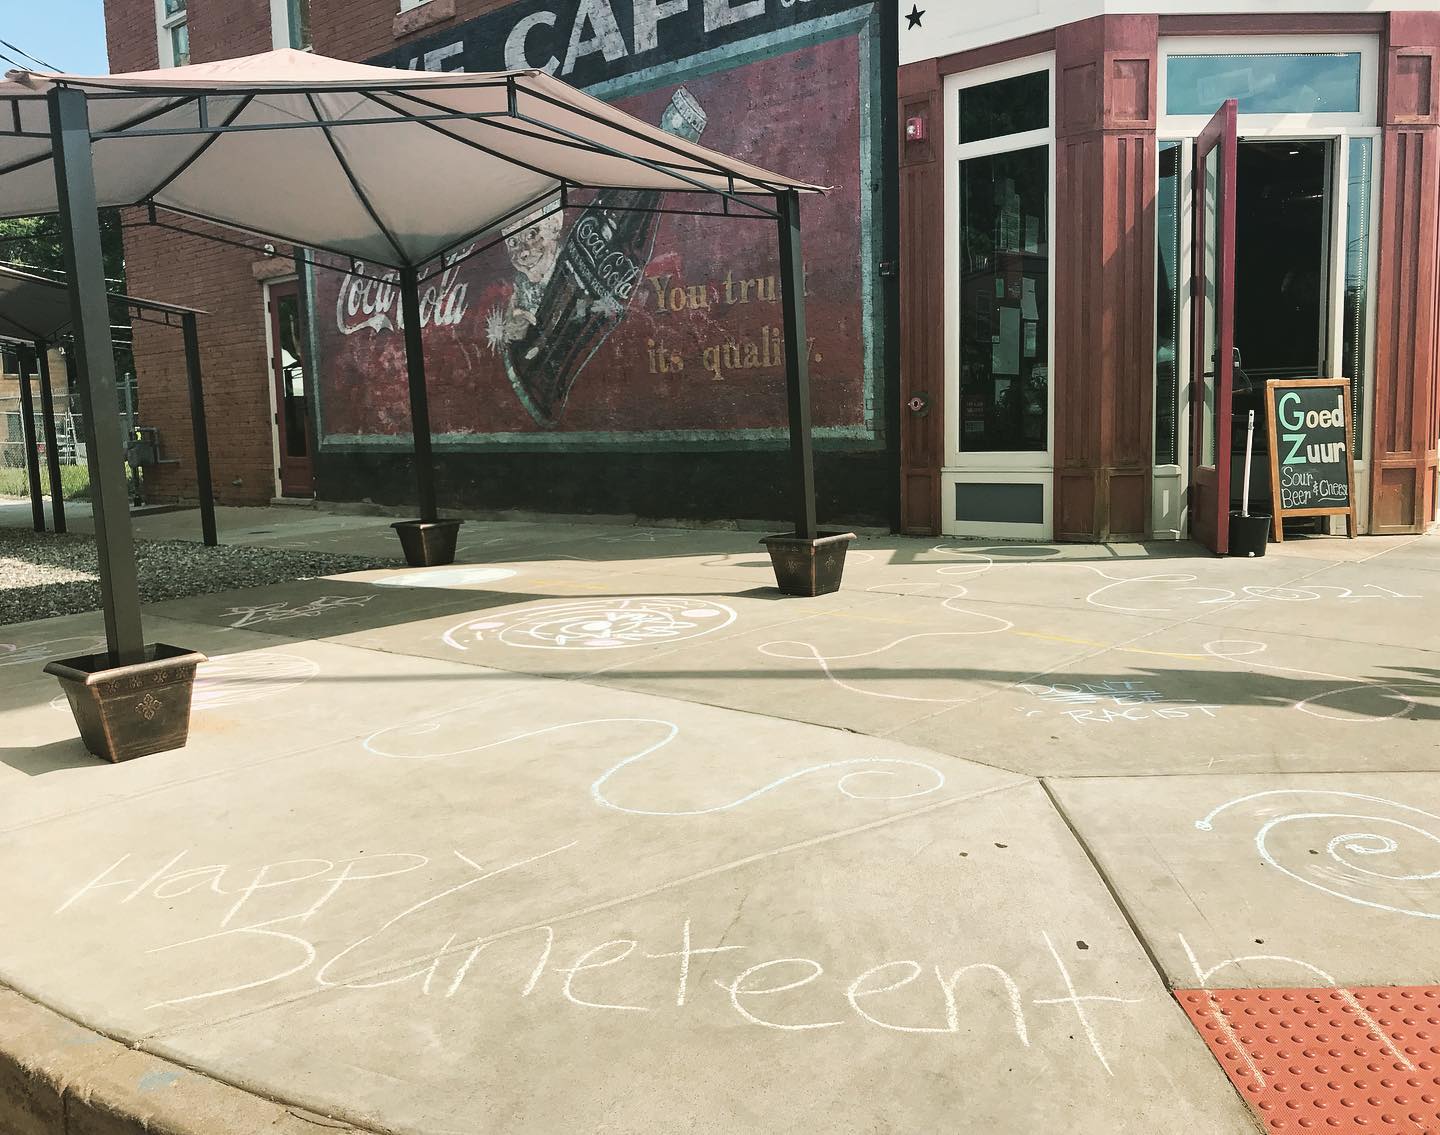 CAFE
Coca-Cola
Coca-Cola
You trust
its quality.
Goed
Zuur
Sour
Beer & Cheese
2021
DONT
BE
RACIST
Happy
Juneteenth